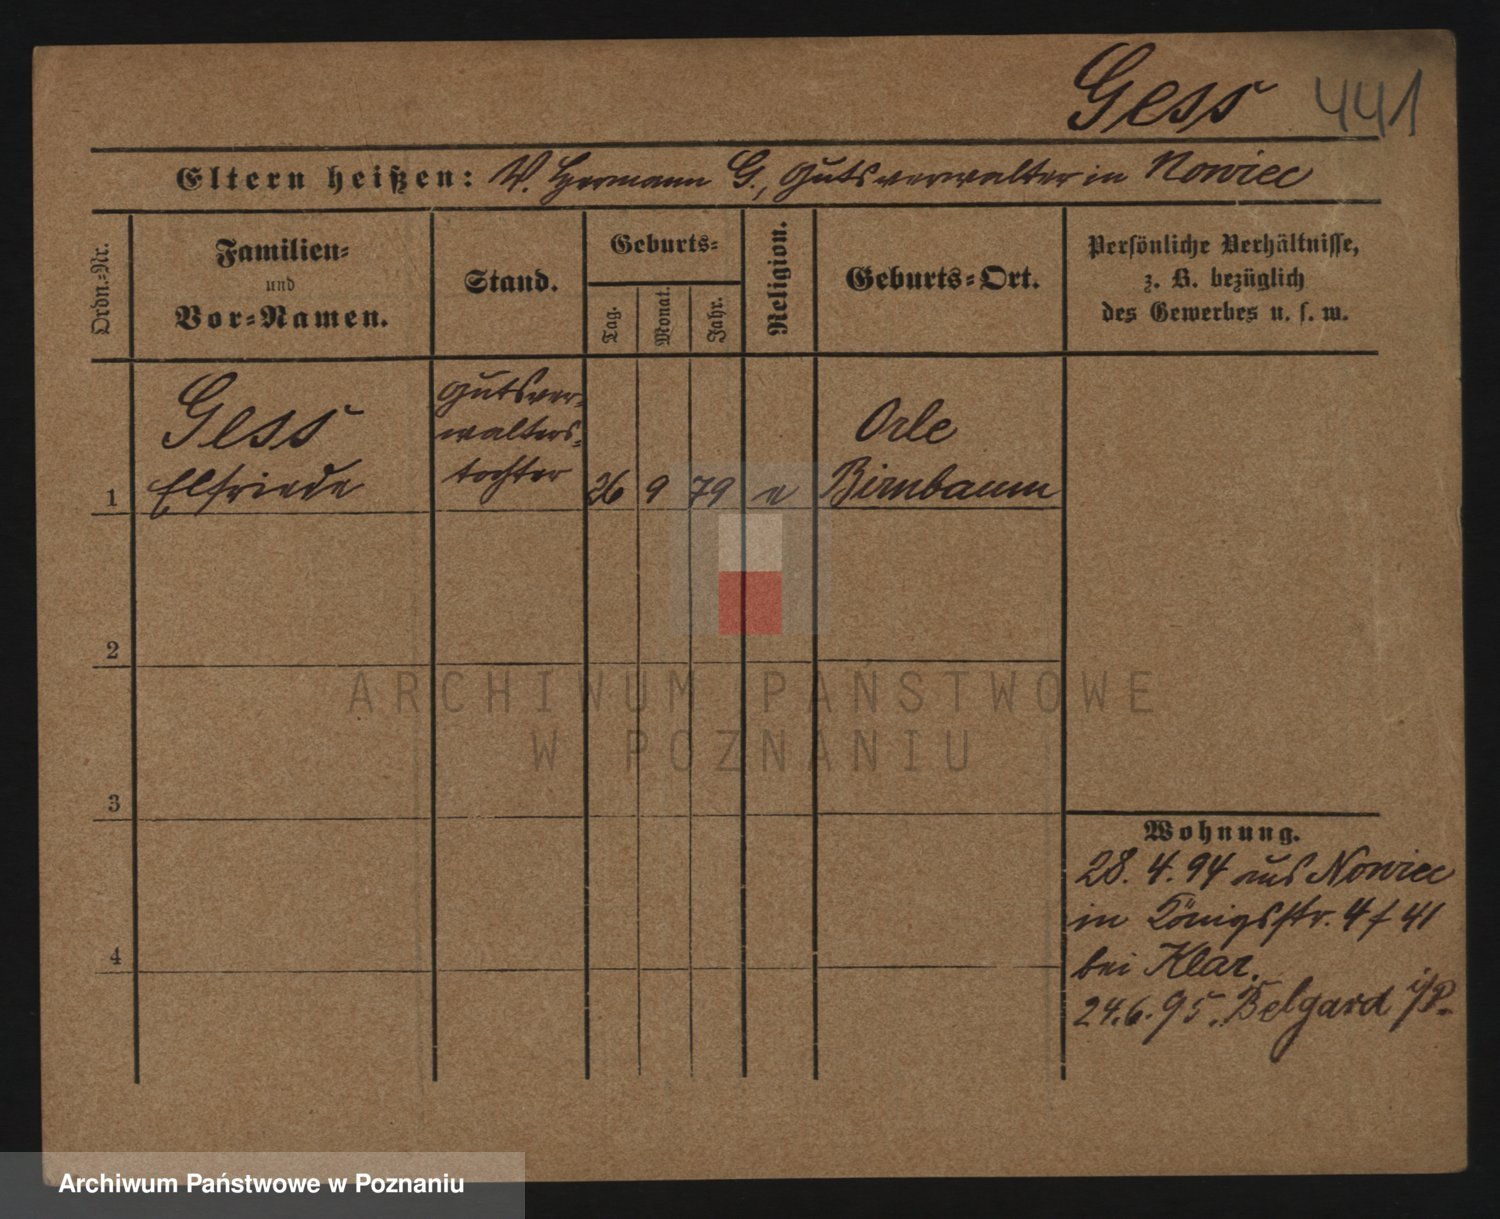 Gess 441
Eltern heißen: V. Hermann G., Gutsverwalter in Nowiec
Ordn.-Nr.
Familien-
und
Vor-Namen.
Stand.
Geburts-
Tag.
Monat.
Jahr.
Religion.
Geburts-Ort.
Persönliche Verhältnisse,
z. B. bezüglich
des Gewerbes u. s. w.
Gess
Elfriede
Gutsver-
walters-
tochter
1
26 9 79 e
Orle
Birnbaum
2
3
4
Wohnung.
28. 4. 94 aus Nowiec
in Königsstr. 4 f 41
bei Klar.
24.6.95. Belgard i/P.
ARCHIWUM PAŃSTWOWE
W POZNANIU
Archiwum Państwowe w Poznaniu